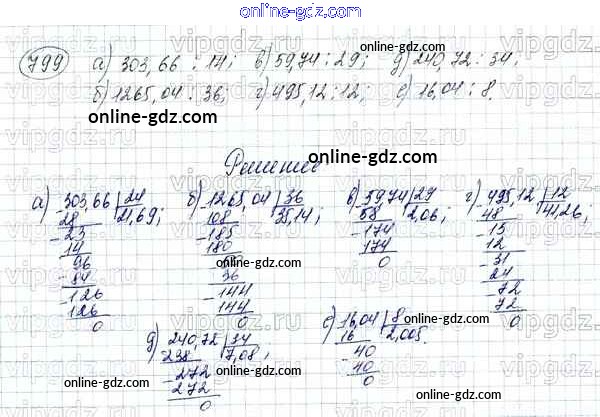 online-gdz.com
799 а) 303,66 : 14; в) 59,74 : 29; д) 240,72 : 34;
online-gdz.com
б) 1265,04 : 36; г) 495,12 : 12; е) 16,04 : 8.
online-gdz.com
Решение
online-gdz.com
а) 303,66 | 24 б) 1265,04 | 36 в) 59,74 | 29 г) 495,12 | 12
28 21,69; 108 35,14; 58 2,06; 48 41,26;
- 23 - 185 - 174 - 15
14 180 174 12
- 96 0 - 31
- 84 36 24
- 126 - 144 - 72
126 144 72
0 0 0
online-gdz.com
д) 240,72 | 34 е) 16,04 | 8
238 7,08; 16 2,005.
- 272 - 40
272 40
0 0
online-gdz.com